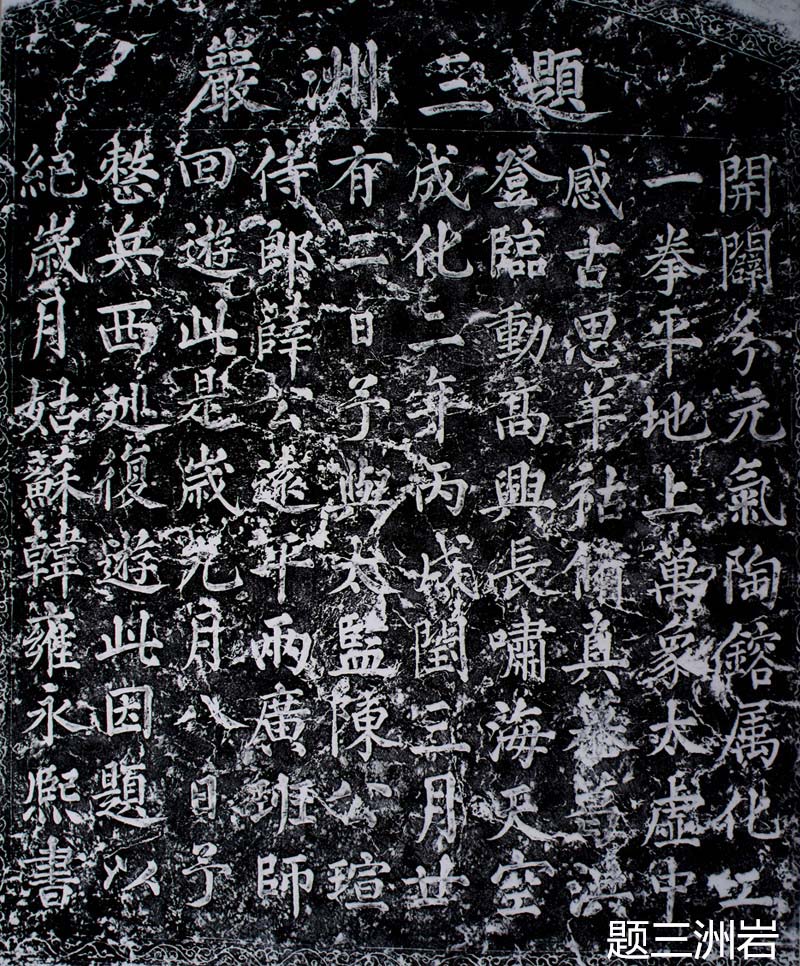 題三洲巖
開闢分元氣陶鎔属化工
一拳平地上萬象太虛中
感古思羊祜脩真慕葛洪
登臨動高興長嘯海天空
成化二年丙戌閏三月廿
有二日予與太監陳公瑄
侍郎薛公遠平兩廣班師
回遊此是歲九月八日予
整兵西廵復遊此因題以
紀歲月姑蘇韓雍永熈書
题三洲岩